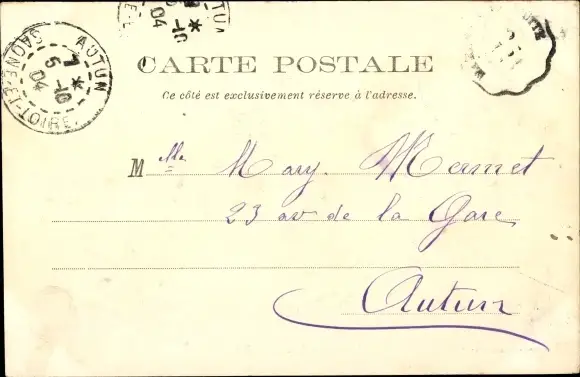 AUTUN
7 *
5 -10
04
SAONE-ET-LOIRE
AUTUN
*
5 -10
04
CARTE POSTALE
Ce côté est exclusivement réserve à l'adresse.
Mlle Mary. Mermet
23 av de la Gare
Autun